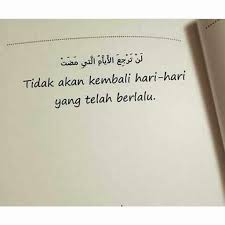 لَنْ تَرْجِعَ الْأَيَّامُ الَّتِي مَضَتْ
Tidak akan kembali hari-hari
yang telah berlalu.